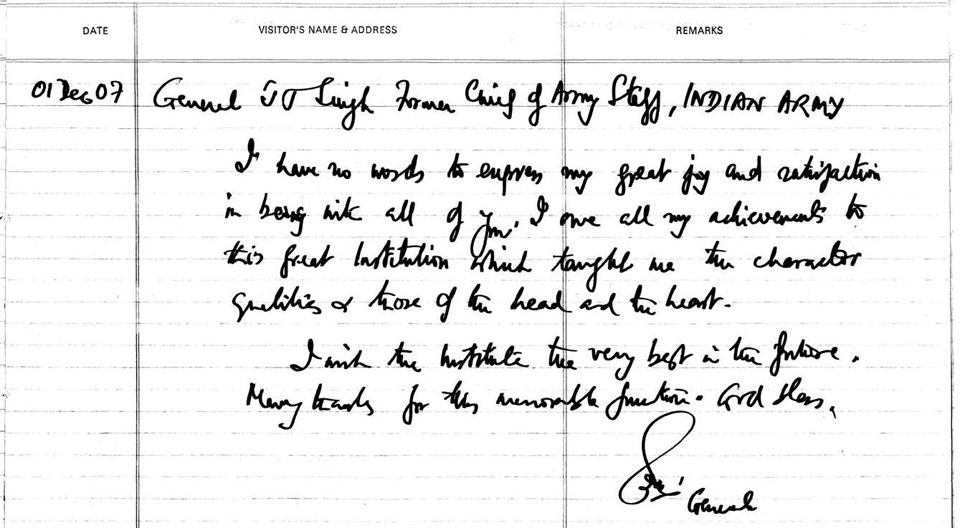 DATE VISITOR'S NAME & ADDRESS REMARKS
01 Dec 07 General J J Singh Former Chief of Army Staff, INDIAN ARMY
I have no words to express my great joy and satisfaction
in being with all of you. I owe all my achievements to
this great Institution which taught me the character
qualities & those of the head and the heart.
I wish the Institute the very best in the future.
Many thanks for this memorable function. God bless.
General